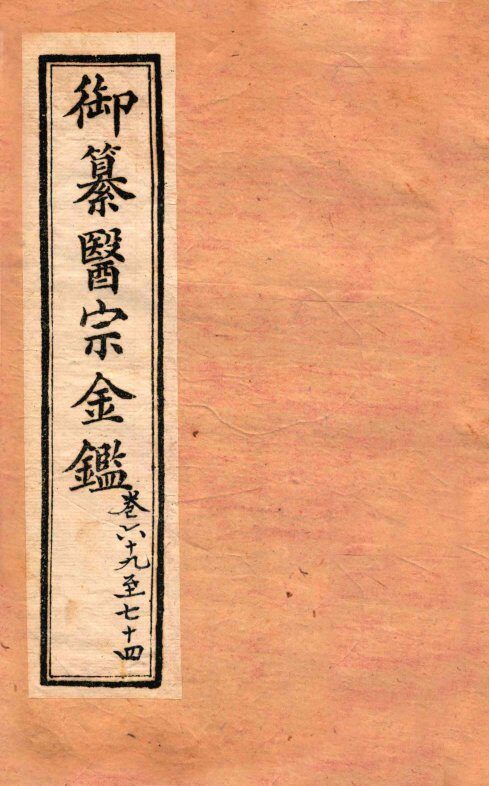 御纂醫宗金鑑
卷六十九至七十四